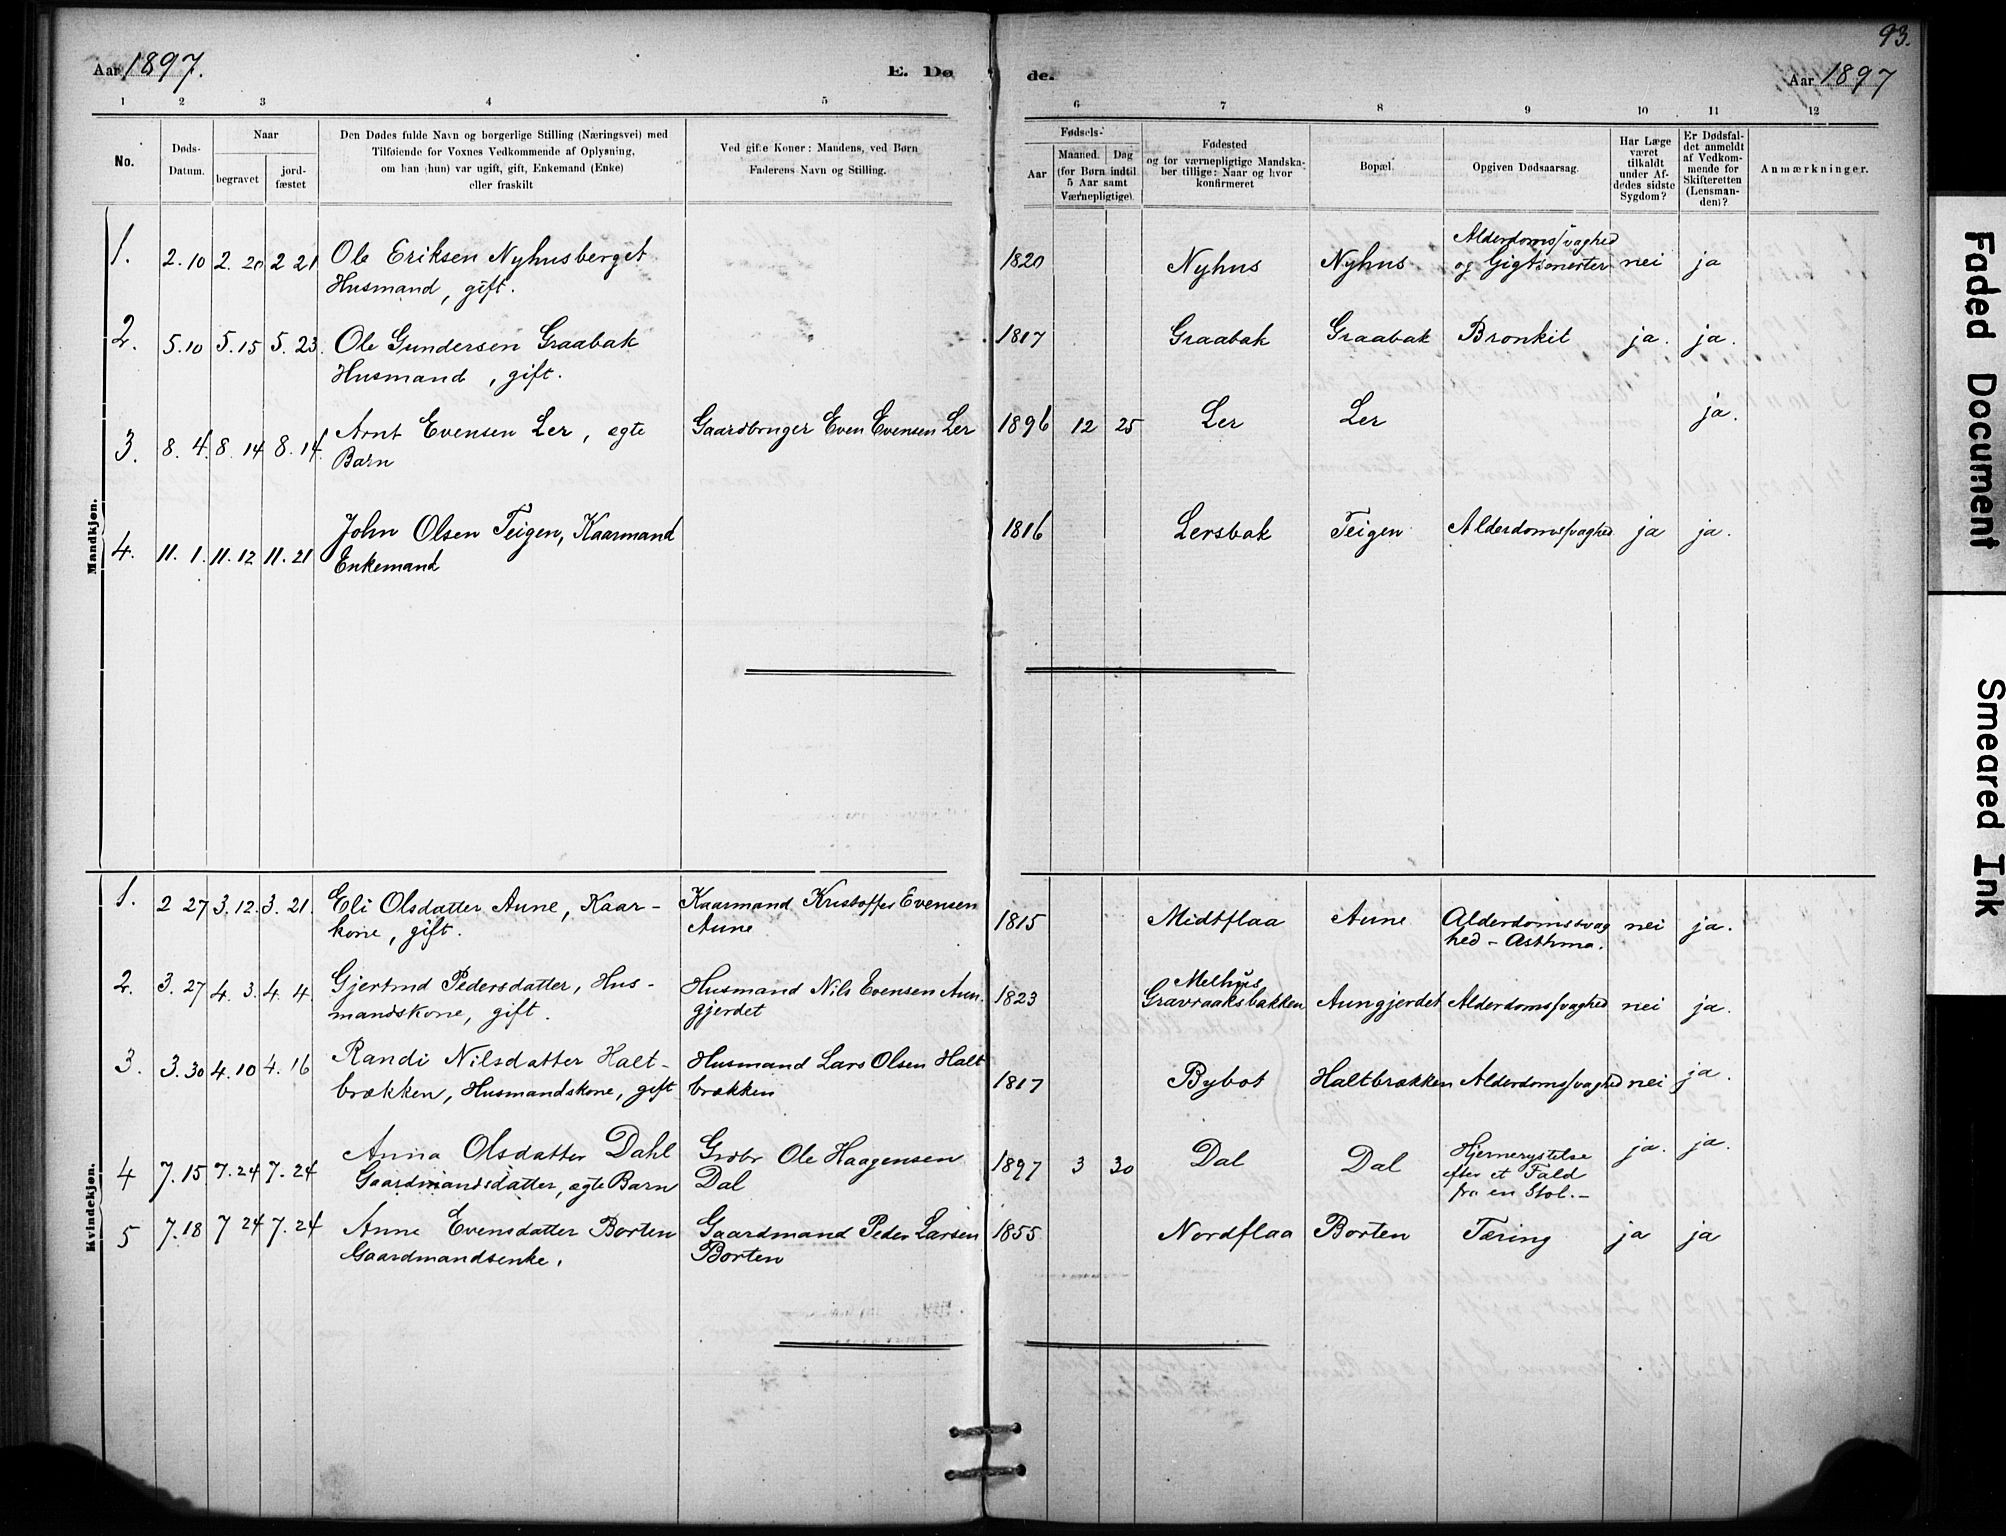 93.
Aar 1897. E. Dø de. Aar 1897
1 2 3 4 5 6 7 8 9 10 11 12
No.
Døds-
Datum.
Naar
begravet
jord-
fæstet
Den Dødes fulde Navn og borgerlige Stilling (Næringsvei) med
Tilføiende for Voxnes Vedkommende af Oplysning,
om han (hun) var ugift, gift, Enkemand (Enke)
eller fraskilt
Ved gifte Koner: Mandens, ved Børn
Faderens Navn og Stilling.
Fødsels-
Aar
Maaned. Dag
(for Børn indtil
5 Aar samt
Værnepligtige).
Fødested
og for værnepligtige Mandska-
ber tillige: Naar og hvor
konfirmeret
Bopæl.
Opgiven Dødsaarsag.
Har Læge
været
tilkaldt
under Af-
dødes sidste
Sygdom?
Er Dødsfal-
det anmeldt
af Vedkom-
mende for
Skifteretten
(Lensman-
den)?
Anmærkninger.
Mandkjøn.
1. 2.10 2. 20 2 21 Ole Eriksen Nyhusberget 1820 Nyhus Nyhus Alderdomssvaghed
Husmand, gift. og Gigtsmerter nei ja
2. 5.10 5.15 5. 23. Ole Gundersen Graabak 1817 Graabak Graabak Bronkit ja. ja.
Husmand, gift.
3. 8. 4. 8. 14 8. 14. Arnt Evensen Ler, egte Gaardbruger Even Evensen Ler 1896 12 25 Ler Ler ja.
Barn
4. 11. 1. 11. 12 11. 21 John Olsen Teigen, Kaarmand 1816 Lersbak Teigen Alderdomssvaghed ja ja.
Enkemand
Kvindekjøn.
1. 2 27 3.12. 3. 21. Eli Olsdatter Aune, Kaar- Kaarmand Kristoffer Evensen 1815 Midtflaa Aune Alderdomssvag nei ja.
kone, gift. Aune hed - Asthma.
2. 3. 27 4. 3. 4. 4. Gjertrud Pedersdatter, Hus- Husmand Nils Evensen Aun- 1823 Melhus Gravraaksbakken Aungjerdet Alderdomssvaghed nei ja.
mandskone, gift. gjerdet
3. 3. 30 4. 10 4. 16 Randi Nilsdatter Halt- Husmand Lars Olsen Halt 1817 Bybot Haltbrækken Alderdomssvaghed nei ja.
brækken, Husmandskone, gift brækken
4 7. 15 7. 24 7. 24 Anna Olsdatter Dahl Grdbr Ole Haagensen 1897 3 30 Dal Dal Hjernerystelse ja. ja.
Gaardmandsdatter, egte Barn Dal efter et Fald
fra en Stol. -
5 7. 18 7 24 7. 24 Anne Evensdatter Borten Gaardmand Peder Larsen 1855 Nordflaa Borten Tæring ja ja
Gaardmandsenke. Borten
Faded Document
Smeared Ink